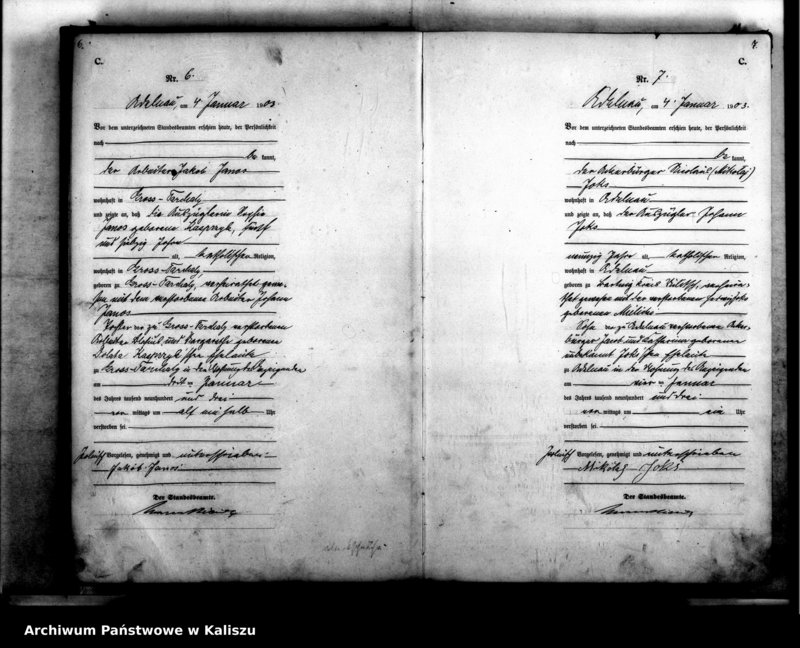 6.
C.
Nr. 6.
Adelnau, am 4 Januar 1903.
Vor dem unterzeichneten Standesbeamten erschien heute, der Persönlichkeit
nach
be kannt,
der Arbeiter Jakob Janos
wohnhaft in Gross-
und zeigte an, daß die Auszüglerin
Janos geborene Kasprzyk,
und siebzig Jahre
alt, katholischer Religion,
wohnhaft in Gross-
geboren zu Gross- verheirathet gewe-
sen mit dem verstorbenen Arbeiter Johann
Janos
Tochter der zu Gross- verstorbenen
Arbeiter und geborenen
Kasprzyk'schen Eheleute
zu Gross- in der Wohnung des Anzeigenden
am dritten Januar
des Jahres tausend neunhundert und drei
vor mittags um elf ein halb Uhr
verstorben sei.
polnisch Vorgelesen, genehmigt und unterschrieben
Jakób Janos
Der Standesbeamte.
7.
C.
Nr. 7.
Adelnau, am 4. Januar 1903.
Vor dem unterzeichneten Standesbeamten erschien heute, der Persönlichkeit
nach
be kannt,
der Ackerbürger (Mikolaj)
Joks
wohnhaft in Adelnau
und zeigte an, daß der Auszügler Johann
Joks
neunzig Jahre alt, katholischer Religion,
wohnhaft in Adelnau
geboren zu Kreis verheira-
thet gewesen mit der verstorbenen
geborenen
Sohn der zu Adelnau verstorbenen Acker-
bürger und geborenen
unbekannt Joks'schen Eheleute
zu Adelnau in der Wohnung des Anzeigenden
am vierten Januar
des Jahres tausend neunhundert und drei
vor mittags um ein Uhr
verstorben sei.
polnisch Vorgelesen, genehmigt und unterschrieben
Mikolaj Joks
Der Standesbeamte.
Archiwum Państwowe w Kaliszu